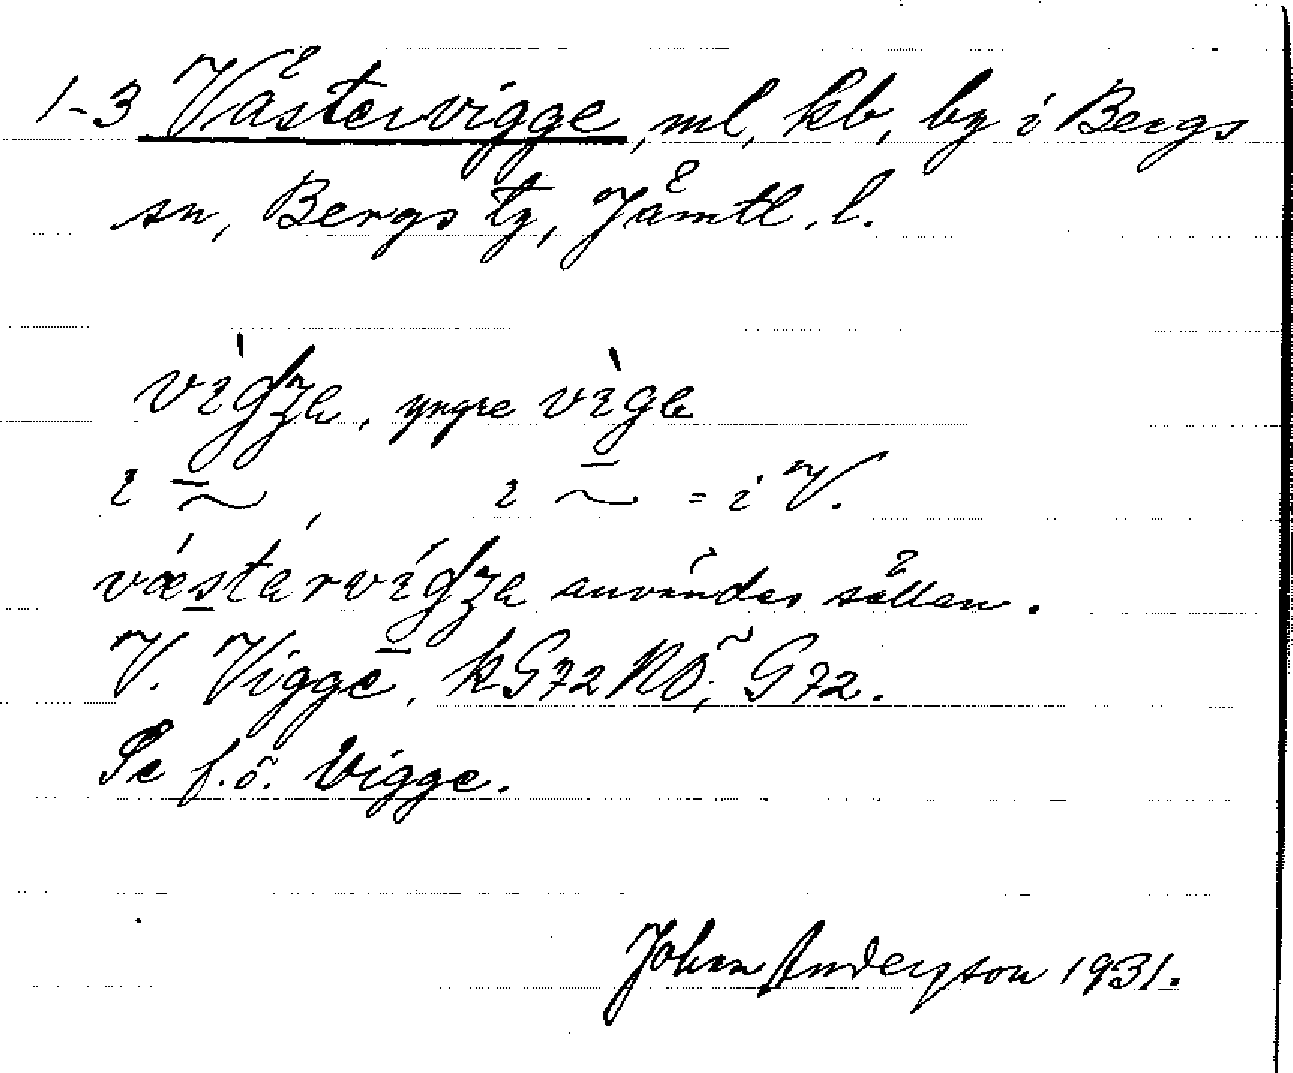 1-3 Västervigge, ml, kb, by i Bergs
sn, Bergs tg, Jämtl. l.
vìgʒa, yngre vìga
ı ~, ı ~ = i V.
västarvígʒa användes sällan.
V. Vigge, k G72 RÖ; G72.
Se f.ö. Vigge.
Johan Anderson 1931.